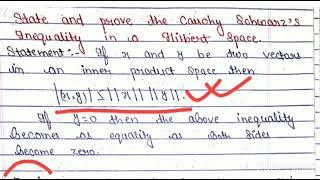 State and prove the Cauchy Schwarz's
Inequality in a Hilbert Space.
Statement:- If x and y be two vectors
in an inner product space then
|(x,y)| ≤ ||x|| ||y||.
If y=0 then the above inequality
becomes as equality as both sides
become zero.